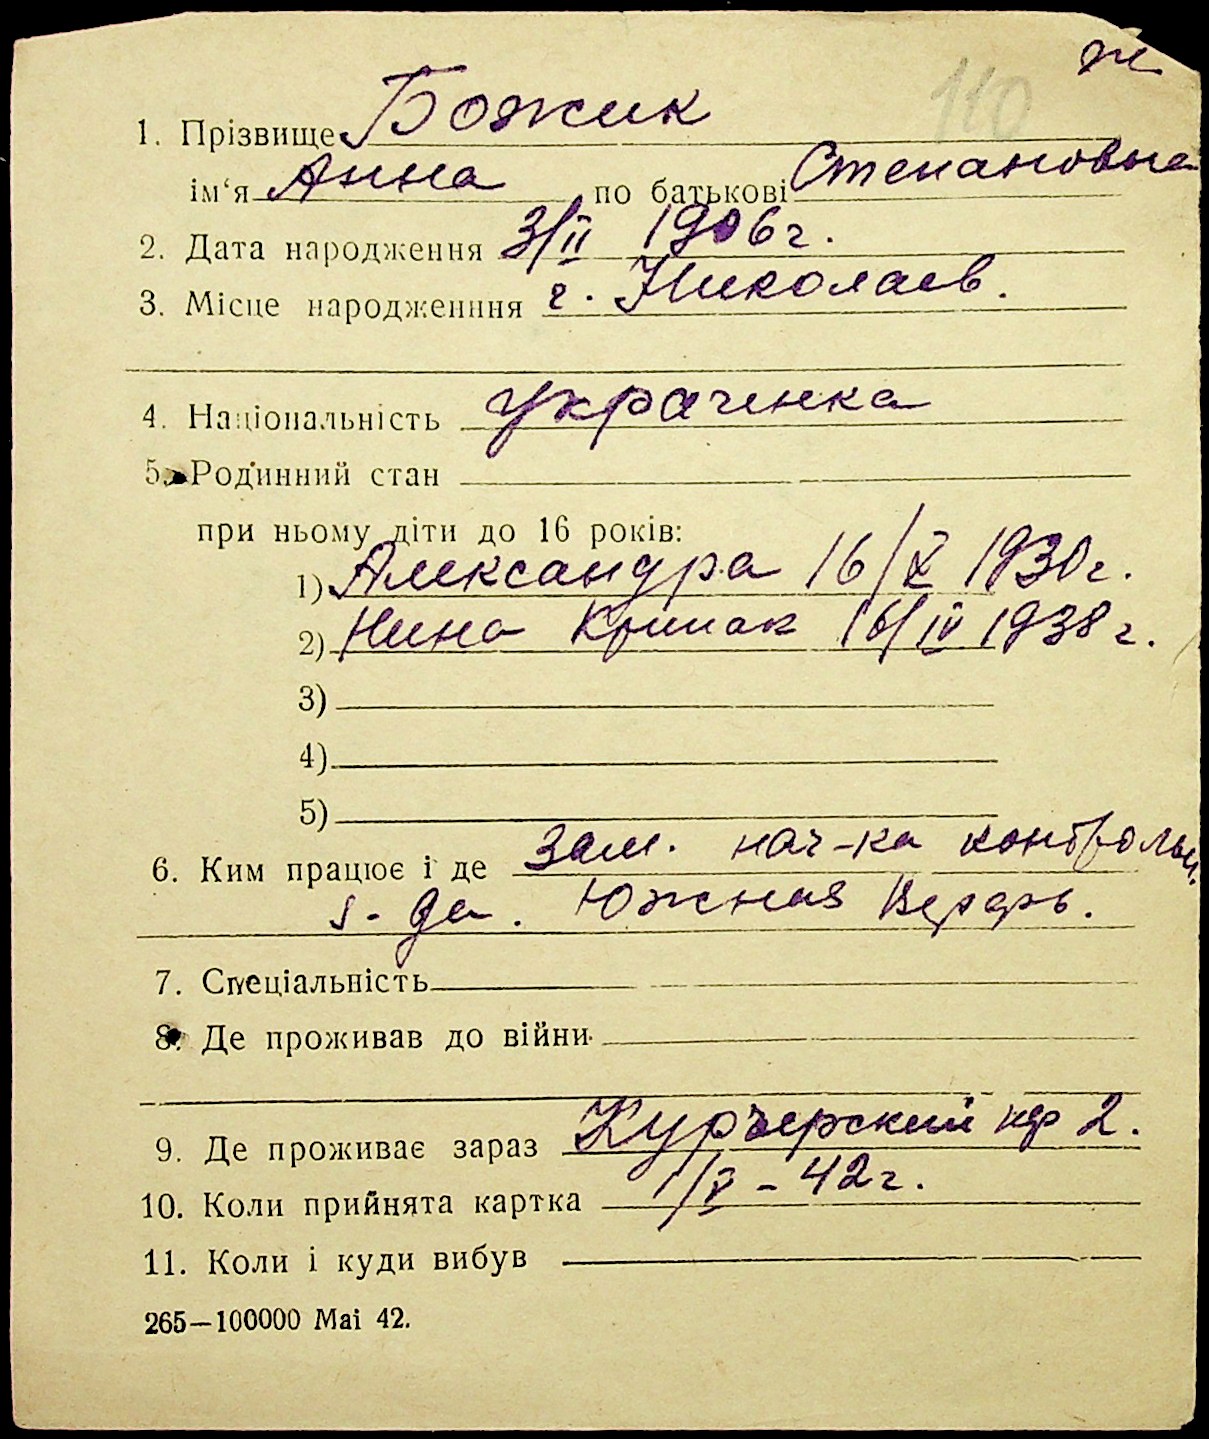 ж
110
1. Прізвище Божик
ім‘я Анна по батькові Степановна
2. Дата народження 3/II 1906 г.
3. Місце народженння г. Николаев.
4. Національність украиенка
5. Родинний стан
при ньому діти до 16 років:
1) Александра 16/X 1930 г.
2) Нина 16/IV 1938 г.
3)
4)
5)
6. Ким працює і де Зам. нач-ка контрольн.
Южная Верфь.
7. Спеціальність
8. Де проживав до війни
9. Де проживає зараз 2.
10. Коли прийнята картка 1/X - 42 г.
11. Коли і куди вибув
265—100000 Mai 42.